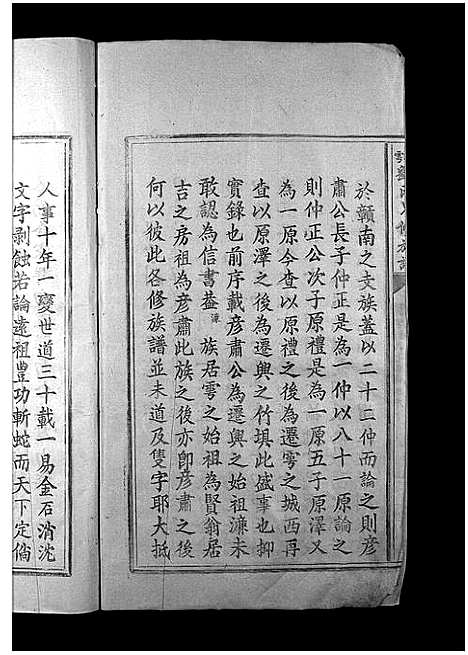 於贛南之支族蓋以二十二仲而論之則彦
肅公長子仲正是為一仲以八十一原論之
則仲正公次子原禮是為一原五子原澤又
為一原今查以原禮之後為遷雩之城西再
查以原澤之後為遷興之竹埧此盛事也抑
實錄也前序載彦肅公為遷興之始祖濂未
敢認為信書益濂族居雩之始祖為賢翁居
吉之房祖為彦肅此族之後亦即彦肅之後
何以彼此各修族譜並未道及隻字耶大抵
人事十年一變世道三十載一易金石消沈
文字剥蝕若論遠祖豐功斬蛇而天下定倘